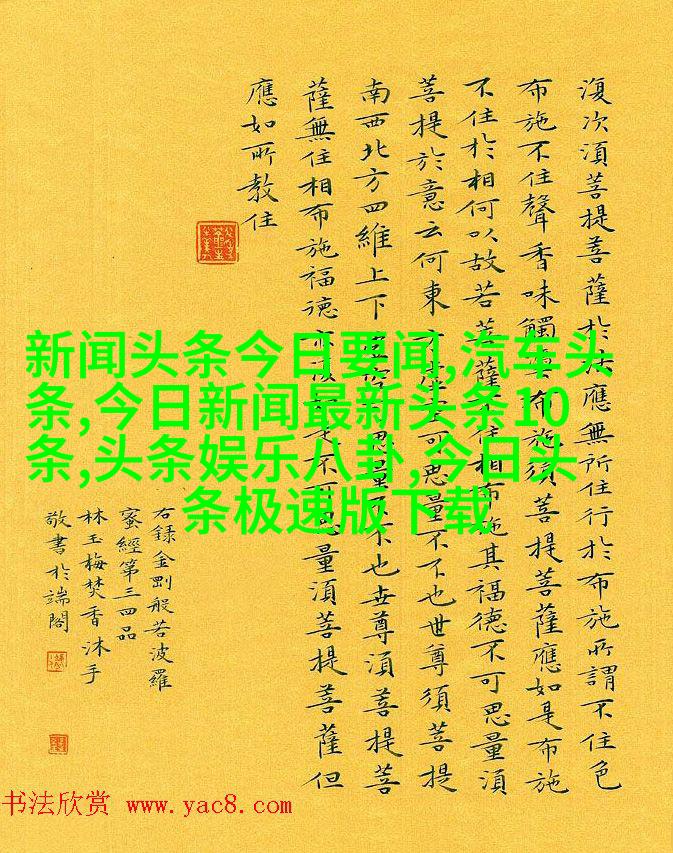 復次湏菩提菩薩於法應無所住行於布施所謂不住色
布施不住聲香味觸法布施湏菩提菩薩應如是布施
不住於相何以故若菩薩不住相布施其福德不可思量湏
菩提於意云何東方虛空可思量不不也世尊須菩提
南西北方四維上下虛空可思量不不也世尊湏菩提菩
薩無住相布施福德亦復如是不可思量湏菩提菩薩但
應如所教住
右錄金剛般若波羅
蜜經第三四品
林玉梅焚香沐手
敬書於端閣
新闻头条今日要闻,汽车头
条,今日新闻最新头条10
条,头条娱乐八卦,今日头
条极速版下载
书法欣赏 www.yac8.com